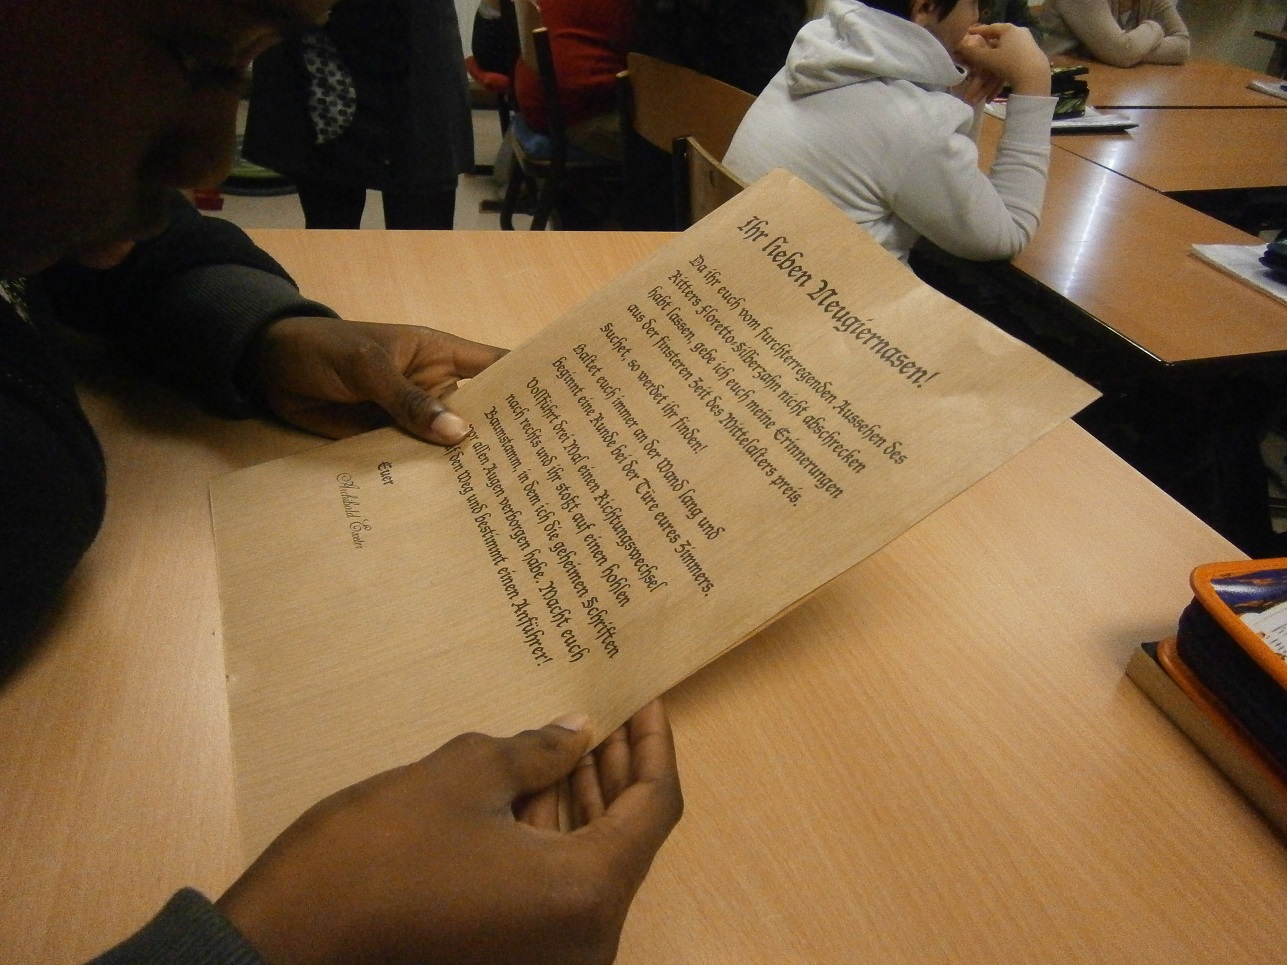 Ihr lieben Neugiernasen!
Da ihr euch vom furchterregenden Aussehen des
Ritters Floretto-Silberzahn nicht abschrecken
habt lassen, gebe ich euch meine Erinnerungen
aus der finsteren Zeit des Mittelalters preis.
Suchet, so werdet ihr finden!
Haltet euch immer an der Wand lang und
beginnt eine Runde bei der Türe eures Zimmers.
Vollführt drei Mal einen Richtungswechsel
nach rechts und ihr stoßt auf einen hohlen
Baumstamm, in dem ich die geheimen Schriften
vor allen Augen verborgen habe. Macht euch
den Weg und bestimmt einen Anführer!
Euer
Archibald